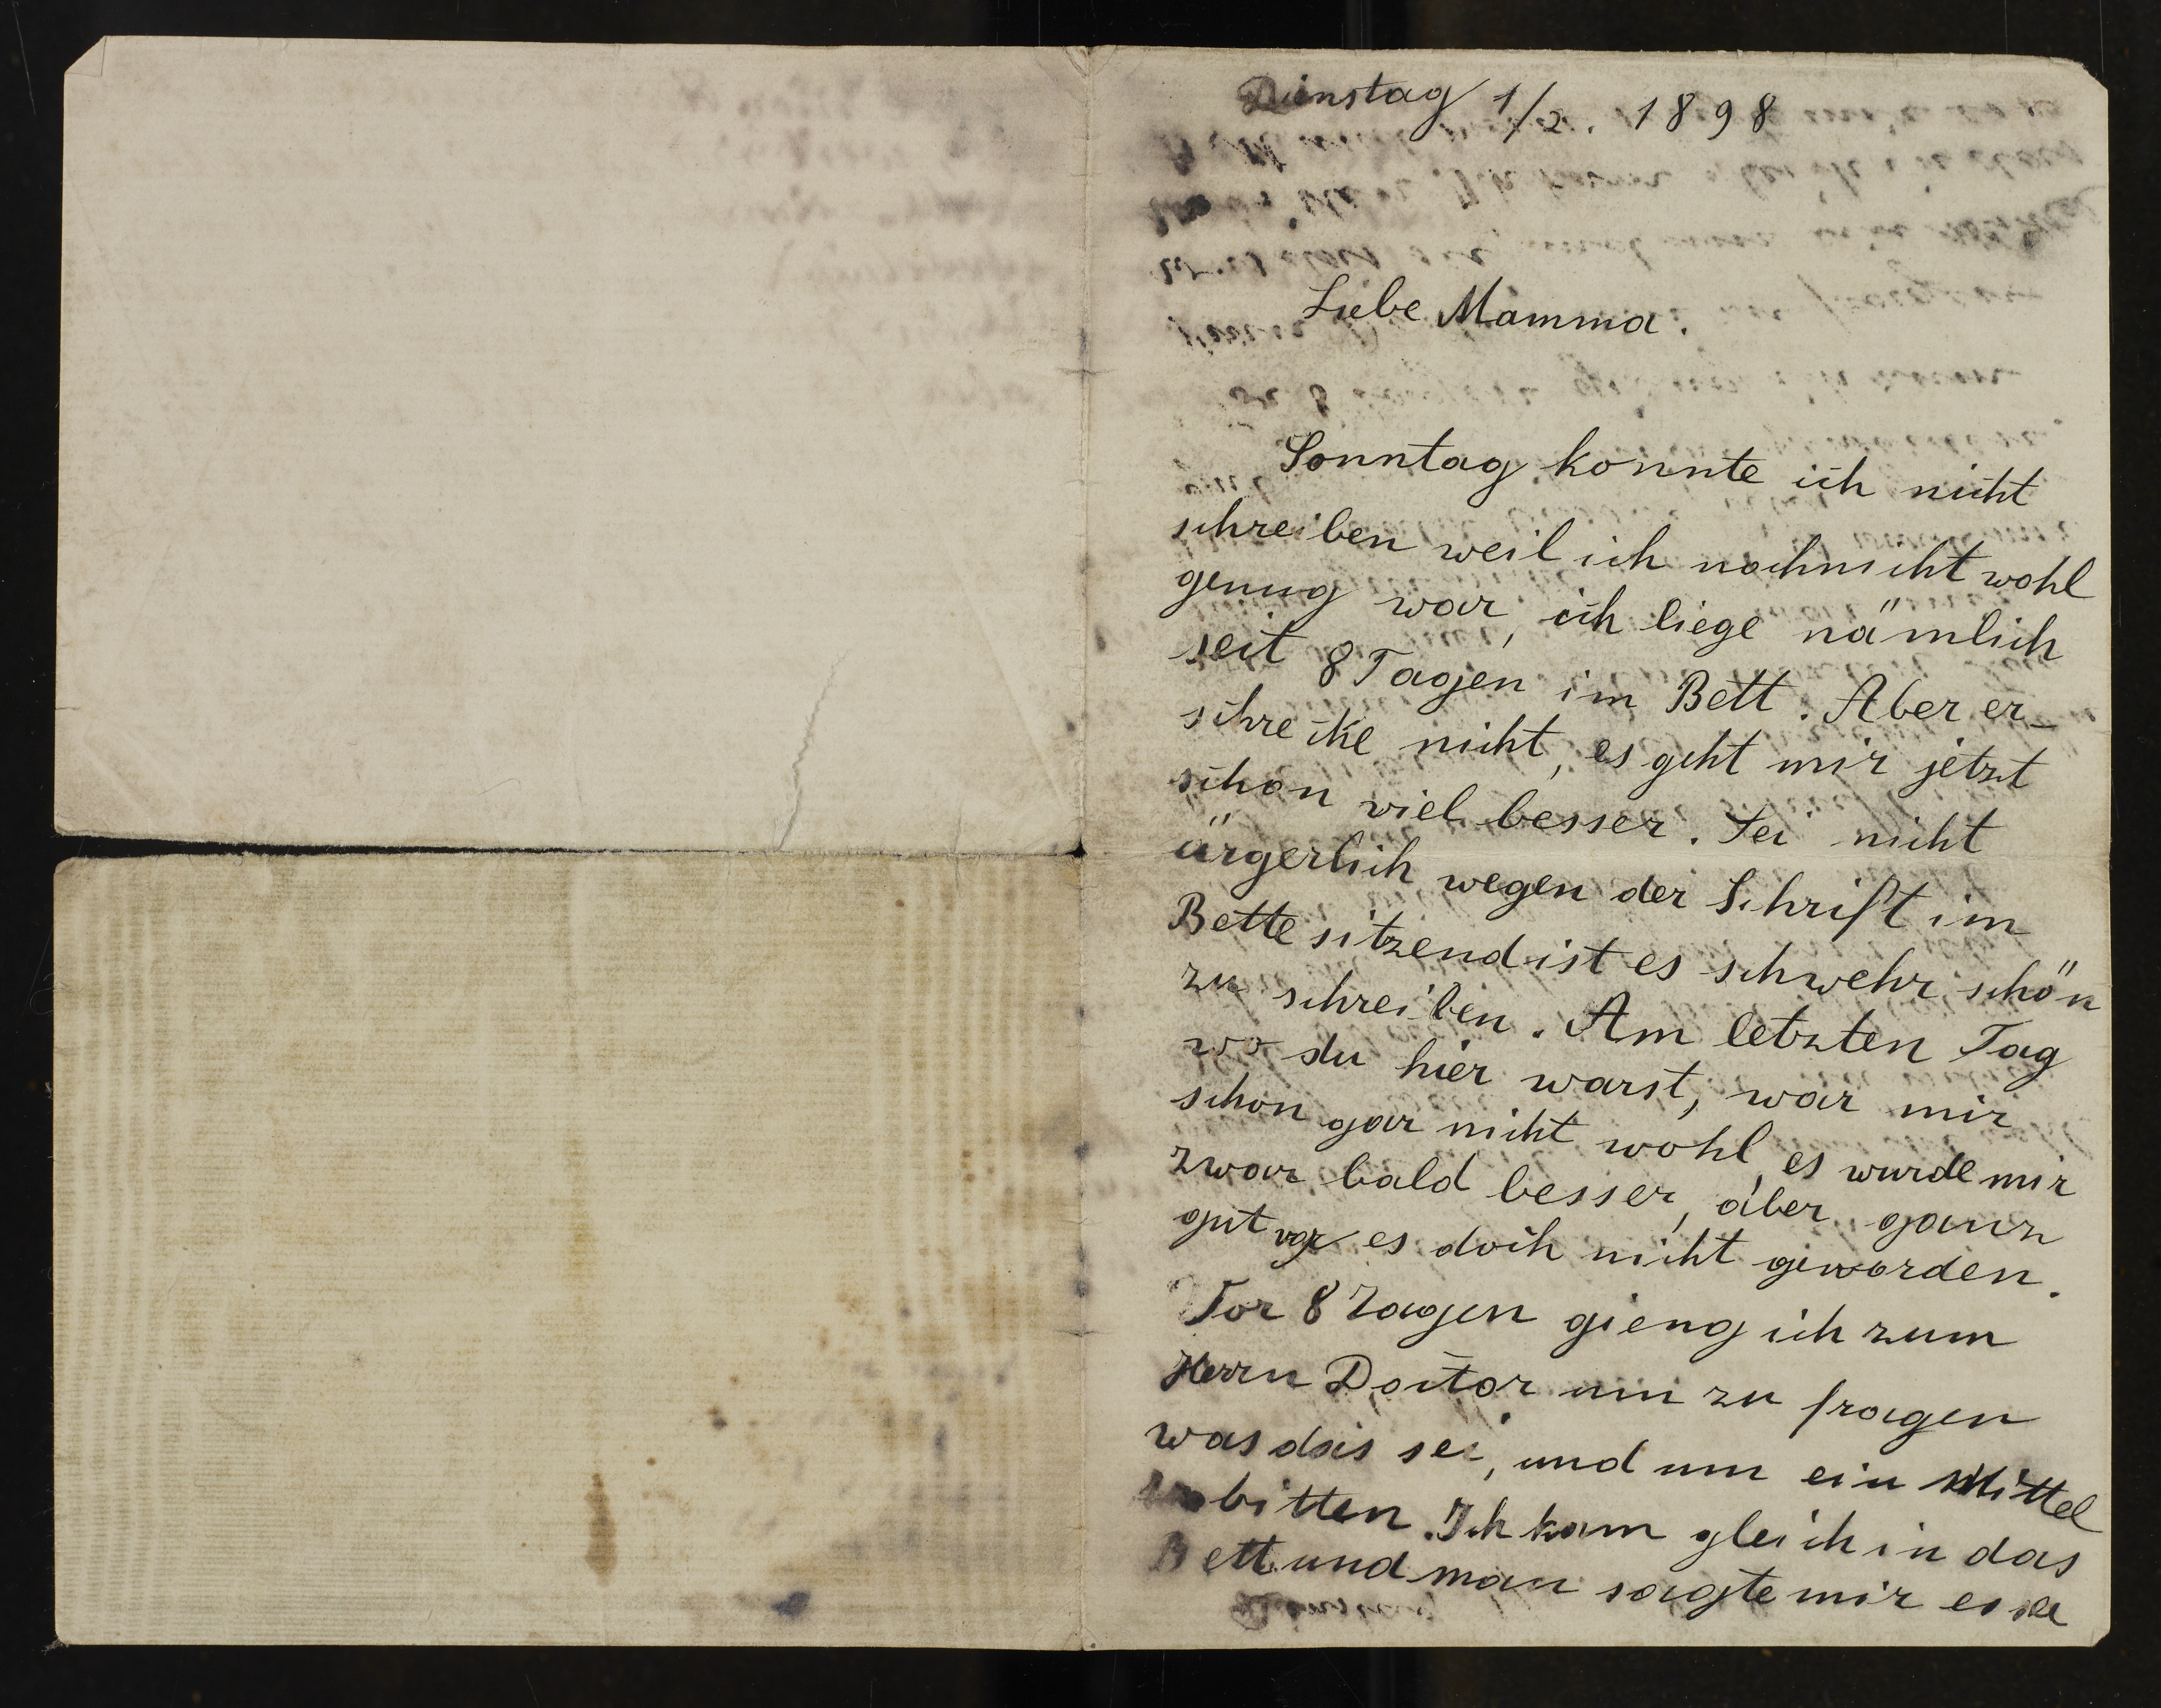 Dienstag 1/2. 1898
Liebe Mamma.
Sonntag konnte ich nicht
schreiben weil ich nochnicht wohl
genug war, ich liege nämlich
seit 8 Tagen im Bett. Aber er-
schrecke nicht, es geht mir jetzt
schon viel besser. Sei nicht
ärgerlich wegen der Schrift im
Bette sitzend ist es schwehr schön
zu schreiben. Am letzten Tag
wo du hier warst, war mir
schon gar nicht wohl, es wurde mir
zwar bald besser, aber ganz
gut war es doch nicht geworden.
Vor 8 Tagen gieng ich zum
Herrn Doctor um zu fragen
was das sei, und um ein Mittel
bitten. Ich kam gleich in das
Bett und man sagte mir es sei